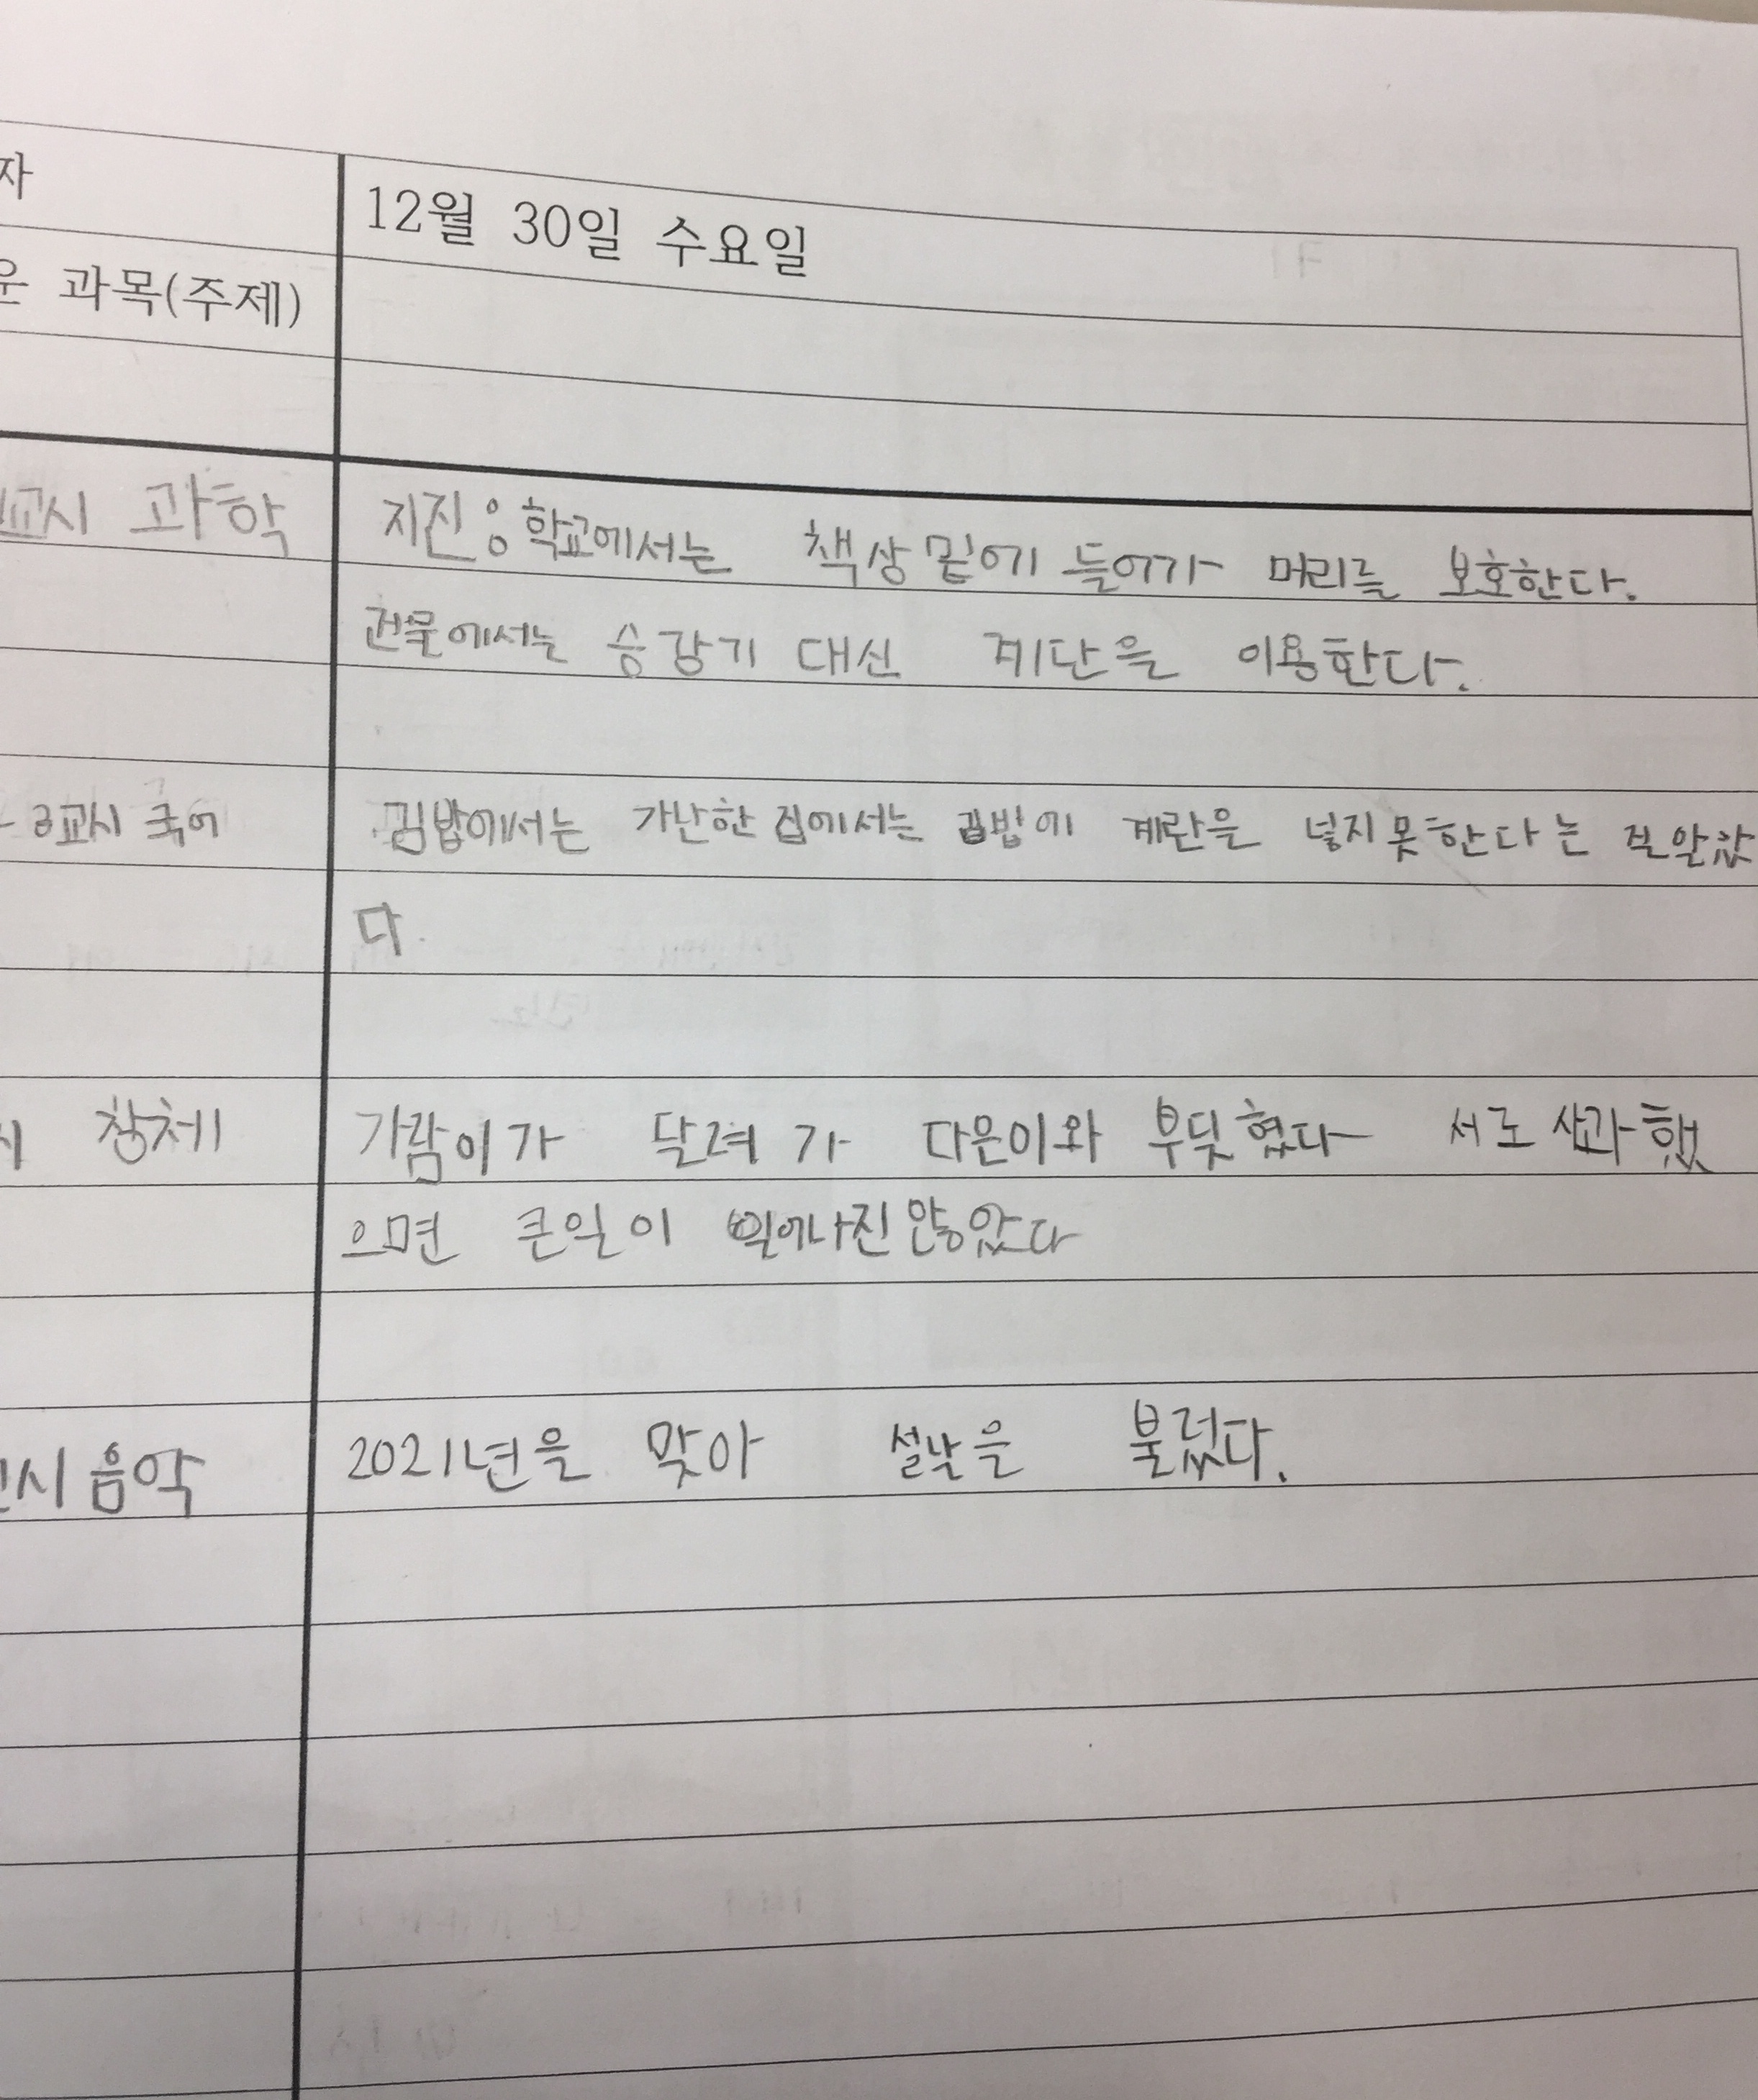 자 12월 30일 수요일
운 과목(주제)
교시 과학 지진: 학교에서는 책상 밑에 들어가 머리를 보호한다.
건물에서는 승강기 대신 계단을 이용한다.
3교시 국어 김밥에서는 가난한 집에서는 김밥에 계란을 넣지 못한다는 걸 알았
다.
시 창체 가람이가 달려 가 다은이와 부딪혔다 서로 사과했
으면 큰일이 일어나진 않았다
교시 음악 2021년을 맞아 설날을 불렀다.